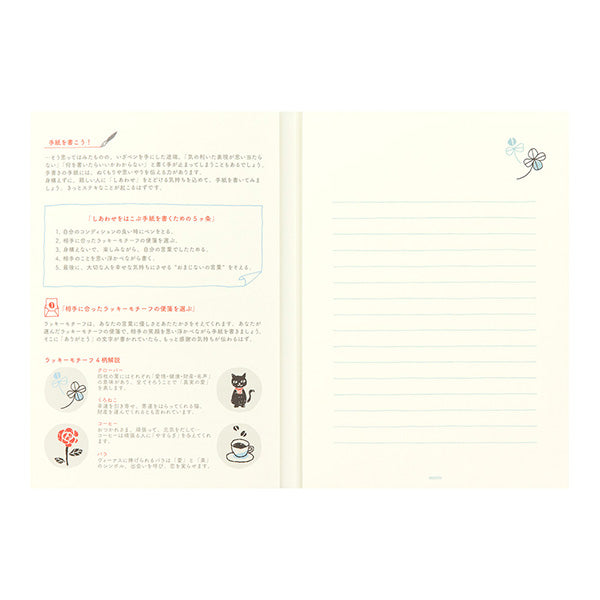 手紙を書こう！
…そう思ってはみたものの、いざペンを手にした途端、「気の利いた表現が思い当たら
ない」「何を書いたらいいかわからない」と書く手が止まってしまうこともあるでしょう。
手書きの手紙には、ぬくもりや思いやりを伝える力があります。
身構えずに、親しい人に「しあわせ」をとどける気持ちを込めて、手紙を書いてみま
しょう。きっとステキなことが起こるはずです。
「しあわせをはこぶ手紙を書くための5ヶ条」
1. 自分のコンディションの良い時にペンをとる。
2. 相手に合ったラッキーモチーフの便箋を選ぶ。
3. 身構えないで、楽しみながら、自分の言葉でしたためる。
4. 相手のことを思い浮かべながら書く。
5. 最後に、大切な人を幸せな気持ちにさせる“おまじないの言葉”をそえる。
「相手に合ったラッキーモチーフの便箋を選ぶ」
ラッキーモチーフは、あなたの言葉に優しさとあたたかさをそえてくれます。あなたが
選んだラッキーモチーフの便箋で、相手の笑顔を思い浮かべながら手紙を書きましょう。
そこに「ありがとう」の文字が書かれていたら、もっと感謝の気持ちが伝わるはず。
ラッキーモチーフ4柄解説
クローバー
四枚の葉にはそれぞれ「愛情・健康・財産・名声」
の意味があり、全てそろうことで「真実の愛」
を表します。
くろねこ
幸運を引き寄せ、悪運をはらってくれる猫。
財産を運んでくれるとも言われています。
コーヒー
おつかれさま、頑張って、元気をだして…
コーヒーは頑張る人に「やすらぎ」を伝えてくれ
ます。
バラ
ヴィーナスに捧げられるバラは「愛」と「美」
のシンボル。出会いを呼び、恋を実らせます。